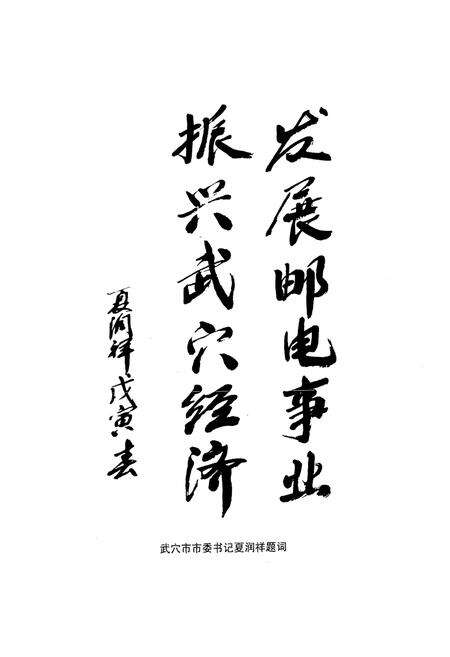 发展邮电事业
振兴武穴经济
夏润祥戊寅春
武穴市市委书记夏润祥题词